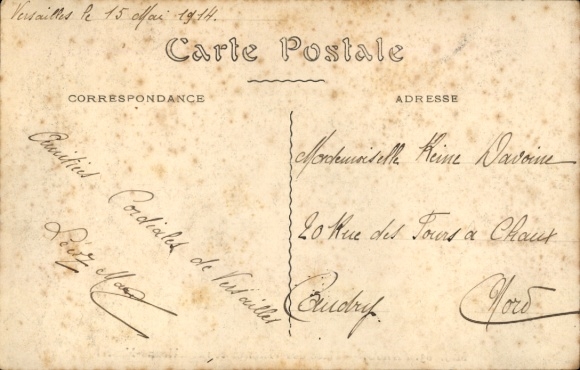 Versailles le 15 Mai 1914.
Carte Postale
CORRESPONDANCE
ADRESSE
Amitiés
Cordiales de Versailles
Mademoiselle Reine Davoine
20 Rue des Fours a Chaux
Caudry
Nord